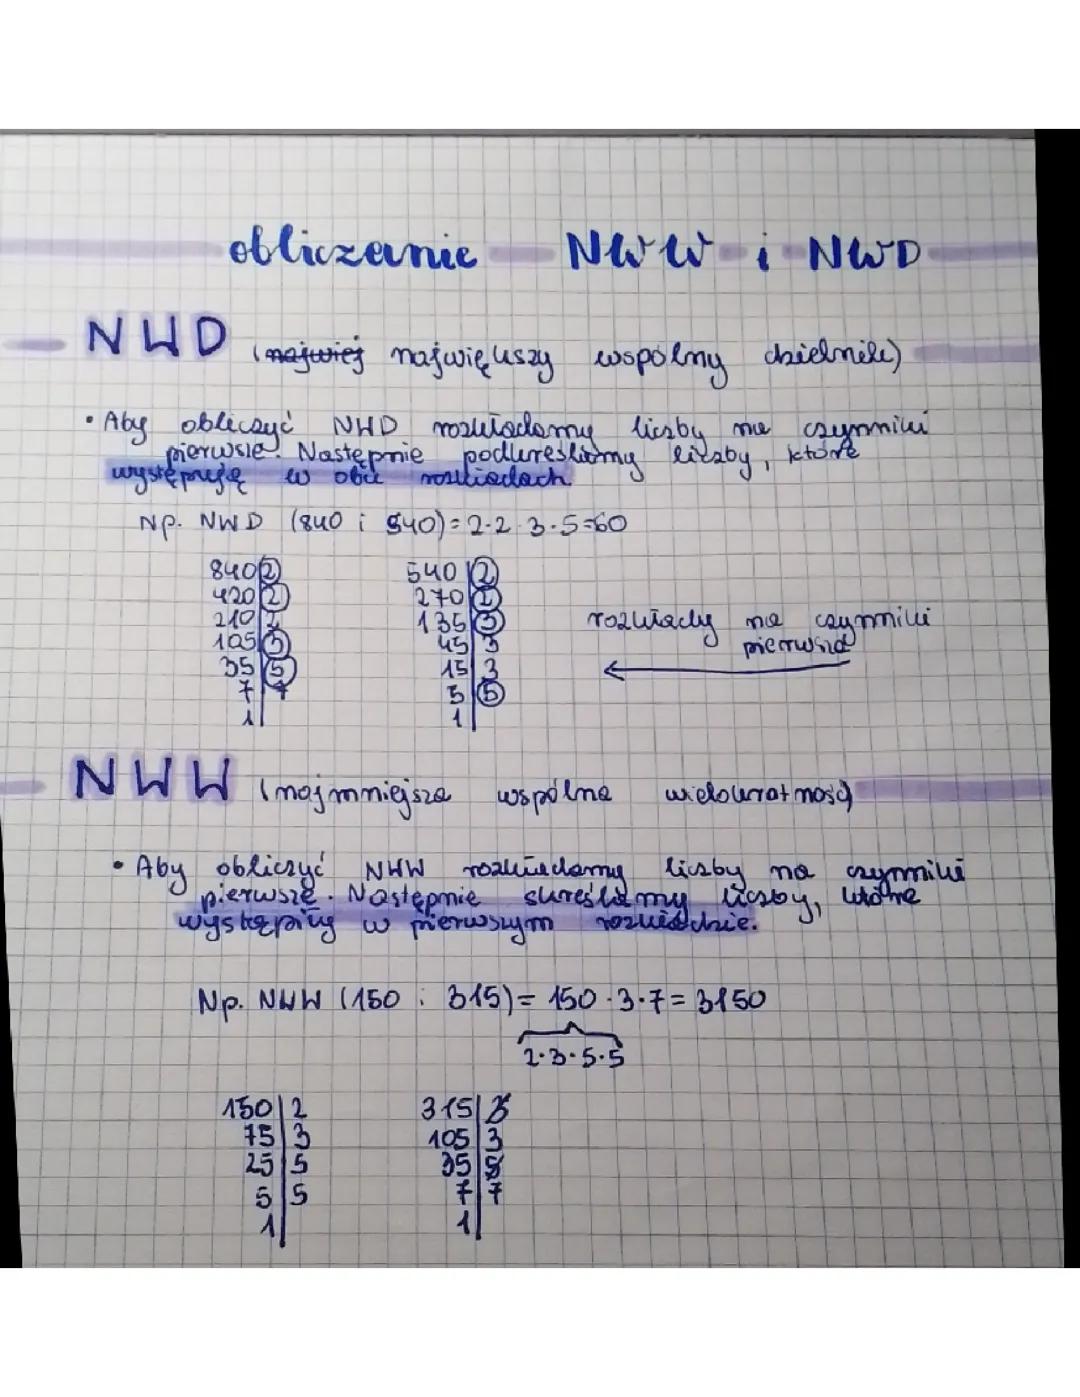 obliczanie NWW i NWD
NWD (najwięj największy wspólny dzielnik)
• Aby obliczyć NWD rozkładamy liczby na czynniki
pierwsze. Następnie podkreślamy liczby, które
występują w obu rozkładach
Np. NWD (840 i 540) = 2·2·3·5=60
840|2 540|2
420|2 270|2
210|2 135|3 rozkłady na czynniki
105|3 45|3 pierwsze
35|5 15|3
7|7 5|5
1| 1|
NWW (najmniejsza wspólna wielokratność)
• Aby obliczyć NWW rozkładamy liczby na czynniki
pierwsze. Następnie skreślamy liczby, które
wystąpiły w pierwszym rozkładzie.
Np. NWW (150 i 315) = 150·3·7 = 3150
2·3·5·5
150|2 315|3
75|3 105|3
25|5 35|5
5|5 7|7
1| 1|